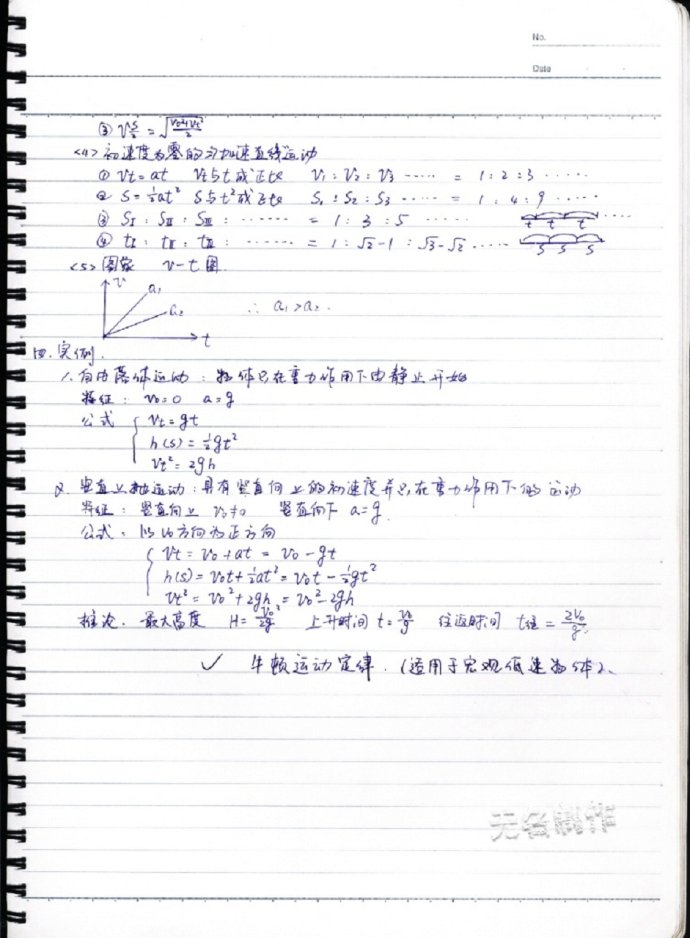 No.
Date
③ V s/2 = √((V₀²+Vt²)/2)
<4> 初速度为零的匀加速直线运动
① Vt=at Vt与t成正比 V₁:V₂:V₃ ····· = 1:2:3 ·····
② S=½at² S与t²成正比 S₁:S₂:S₃ ····· = 1:4:9 ·····
③ SⅠ:SⅡ:SⅢ: ······ = 1:3:5 ······ t t t ····
④ tⅠ:tⅡ:tⅢ: ······ = 1:√2-1:√3-√2 ····· S S S
<5> 图象 v-t图
v a₁ a₂ t ∴ a₁>a₂.
四.实例.
1.自由落体运动:物体只在重力作用下由静止开始
特征: V₀=0 a=g
公式 { Vt=gt
h(s)=½gt²
Vt²=2gh
2. 竖直上抛运动:具有竖直向上的初速度并只在重力作用下的运动
特征: 竖直向上 V₀≠0 竖直向下 a=g.
公式: 以V₀方向为正方向
{ Vt=V₀+at=V₀-gt
h(s)=V₀t+½at²=V₀t-½gt²
Vt²=V₀²+2gh=V₀²-2gh
推论. 最大高度 H=V₀²/2g 上升时间 t=V₀/g 往返时间 t往=2V₀/g.
✓ 牛顿运动定律.(适用于宏观低速物体)、
无名制作